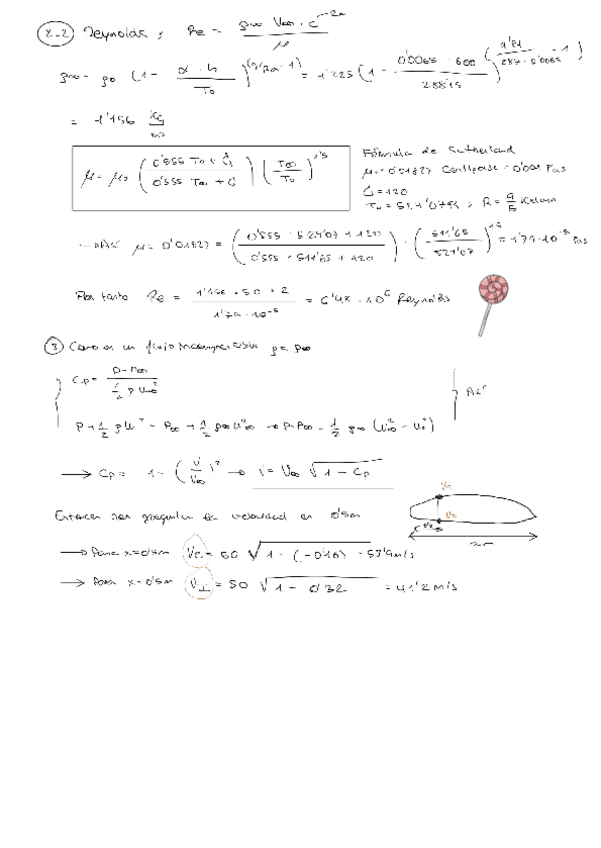 2-2 Reynolds; Re = ρ∞ V∞ · c → 2m / μ
ρ∞ = ρ0 (1 - α · h / T0)^(g/Rα - 1) = 1'225 (1 - 0'0065 · 600 / 288'15)^(9'81 / 287 · 0'0065 - 1)
= 1'156 kg/m3
μ = μ0 (0'555 T0 + C / 0'555 T∞ + C) (T∞ / T0)^1'5
Fórmula de Sutherland
μ = 0'01827 Centipoise = 0'001 Pas
C = 120
T0 = 524'07 R = 9/5 Kelvin
Así μ = 0'01827 = (0'555 · 524'07 + 120 / 0'555 · 511'65 + 120) · (511'65 / 524'07)^1'5 = 1'79 · 10^-5 Pas
Por tanto Re = 1'156 · 50 · 2 / 1'79 · 10^-5 = 6'48 · 10^6 Reynolds
3 Como es un flujo incompresible ρ = ρ∞
Cp = p - p∞ / 1/2 ρ U∞^2
Así
P + 1/2 ρ U^2 = P∞ + 1/2 ρ∞ U∞^2 → P - P∞ = 1/2 ρ∞ (U∞^2 - U^2)
→ Cp = 1 - (V / V∞)^2 → V = V∞ √1 - Cp
Entonces nos preguntan la velocidad en 0'5m
→ Para x=0'5m = 50 √1 - (-0'16) = 53'9 m/s
→ Para x=0'5m = 50 √1 - 0'32 = 41'2 m/s
2m